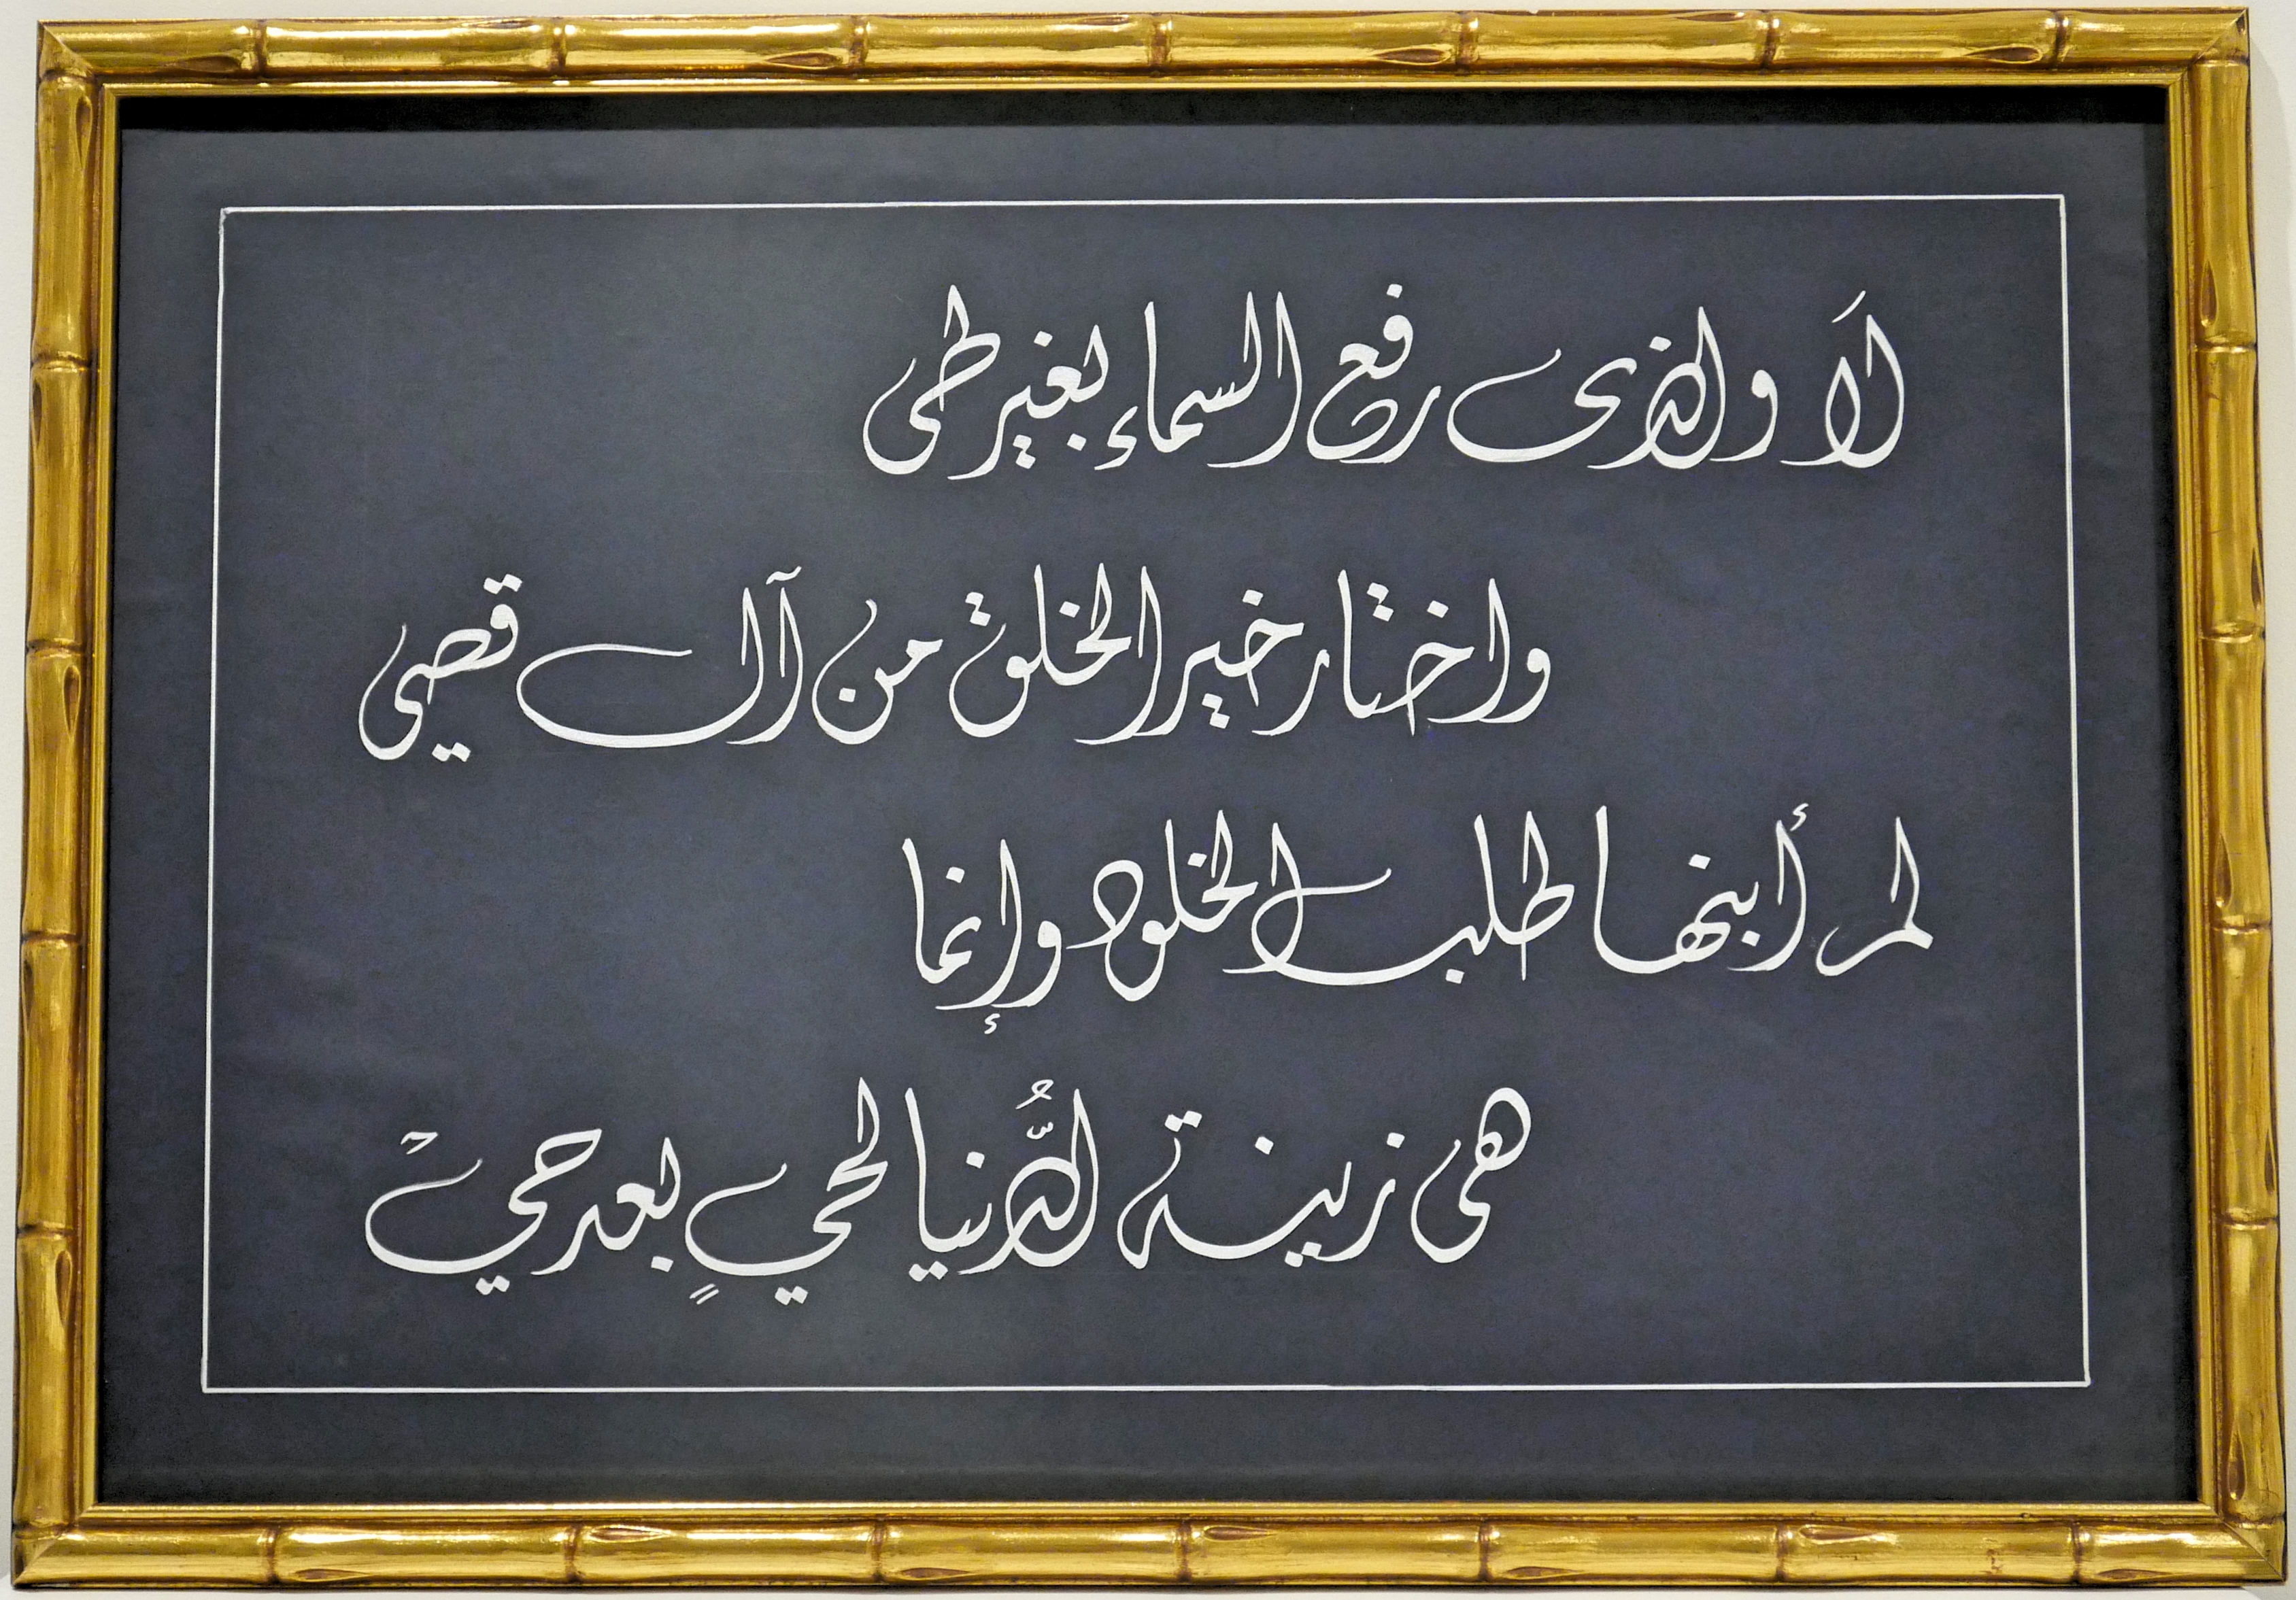 لَا والذى رفع السماء بغير طى
واختار خير الخلق من آل قصي
لم أبنها طلب الخلود وإنما
هى زينة الدُّنيا لحيٍ بعد حيْ